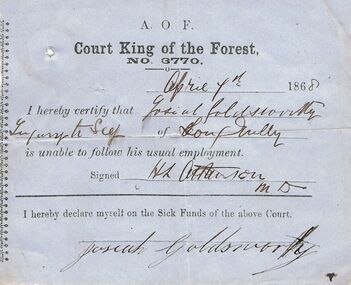 A. O. F.
Court King of the Forest,
NO. 3770.
April 7th 1868
I hereby certify that Josiah Goldsworthy
of Long Gully
is unable to follow his usual employment.
Signed H L Atkinson
M D
I hereby declare myself on the Sick Funds of the above Court.
Josiah Goldsworthy